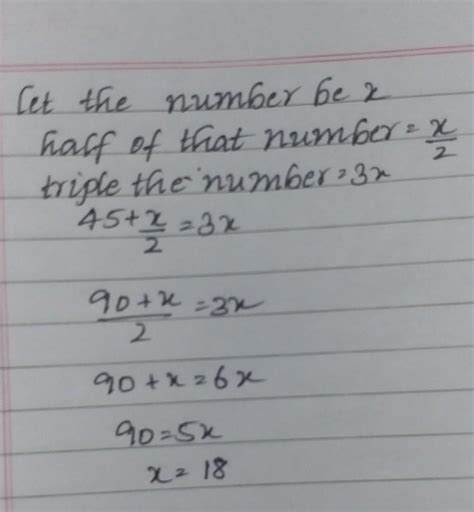 let the number be x
half of that number = x/2
triple the number = 3x
45 + x/2 = 3x
90 + x/2 = 3x
90 + x = 6x
90 = 5x
x = 18